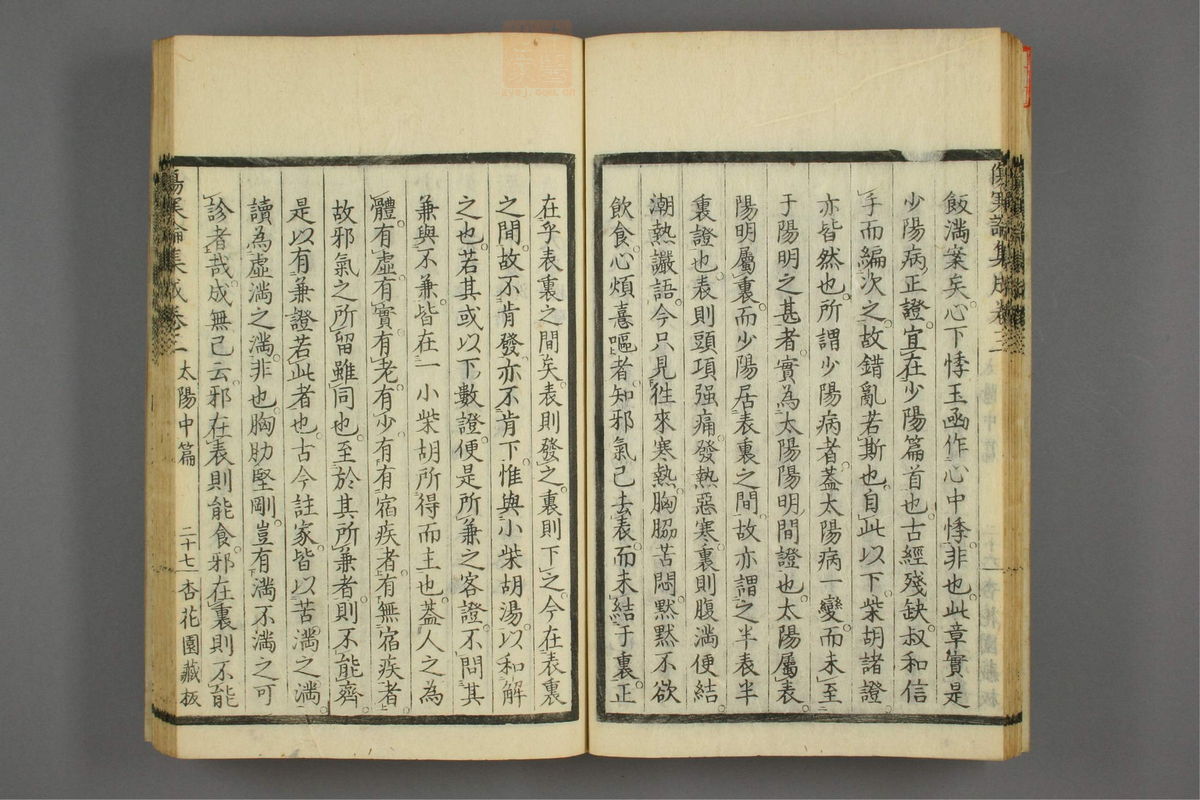 飯滿案矣心下悸玉函作心中悸非也此章實是
少陽病正證宜在少陽篇首也古經殘缺叔和信
手而編次之故錯亂若斯也自此以下柴胡諸證
亦皆然也所謂少陽病者蓋太陽病一變而未至
于陽明之甚者實為太陽陽明間證也太陽屬表
陽明屬裏而少陽居表裏之間故亦謂之半表半
裏證也表則頭項强痛發熱惡寒裏則腹滿便結
潮熱讝語今只見徃來寒熱胸脇苦悶默默不欲
飲食心煩憙嘔者知邪氣已去表而未結于裏正
在乎表裏之間矣表則發之裏則下之今在表裏
之間故不肯發亦不肯下惟與小柴胡湯以和解
之也若其或以下數證便是所兼之客證不問其
兼與不兼皆在一小柴胡所得而主也蓋人之為
體有虛有實有老有少有有宿疾者有無宿疾者
故邪氣之所留雖同也至於其所兼者則不能齊
是以有兼證若此者也古今註家皆以苦滿之滿
讀為虛滿之滿非也胸肋堅剛豈有滿不滿之可
診者哉成無己云邪在表則能食邪在裏則不能
傷寒論集成卷三 太陽中篇 二十七 杏花園藏板